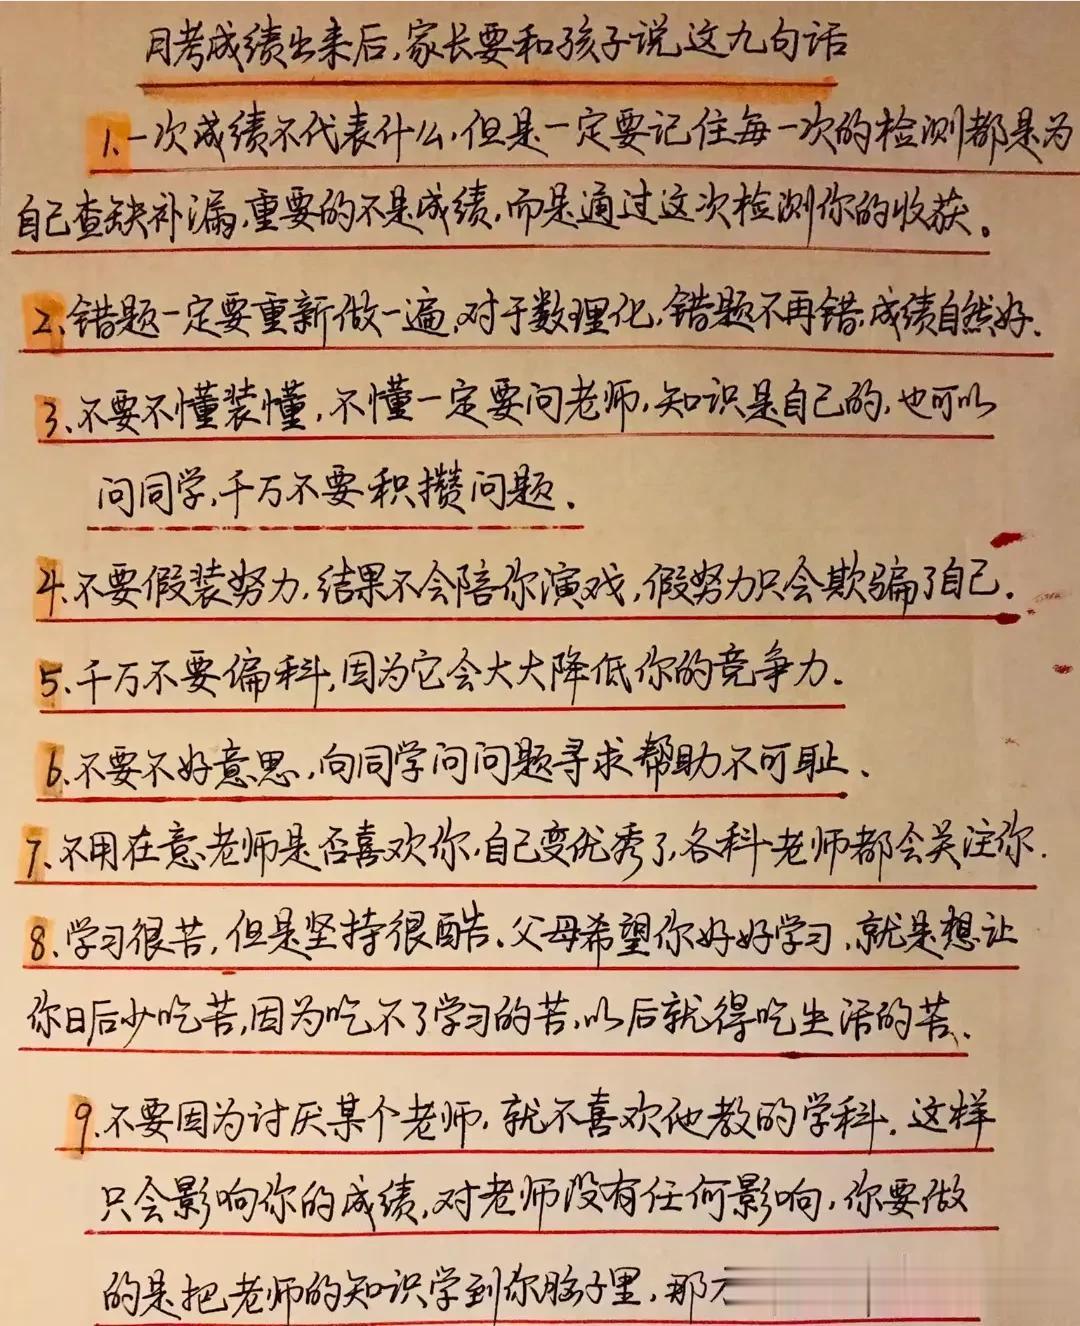 月考成绩出来后,家长要和孩子说这九句话
1、一次成绩不代表什么,但是一定要记住每一次的检测都是为
自己查缺补漏,重要的不是成绩,而是通过这次检测你的收获。
2、错题一定要重新做一遍,对于数理化,错题不再错,成绩自然好.
3、不要不懂装懂,不懂一定要问老师,知识是自己的,也可以
问同学,千万不要积攒问题.
4、不要假装努力,结果不会陪你演戏,假努力只会欺骗了自己.
5、千万不要偏科,因为它会大大降低你的竞争力.
6、不要不好意思,向同学问问题寻求帮助不可耻、
7、不用在意老师是否喜欢你,自己变优秀了,各科老师都会关注你.
8、学习很苦,但是坚持很酷、父母希望你好好学习,就是想让
你日后少吃苦,因为吃不了学习的苦,以后就得吃生活的苦、
9、不要因为讨厌某个老师,就不喜欢他教的学科.这样
只会影响你的成绩,对老师没有任何影响,你要做
的是把老师的知识学到你脑子里,那